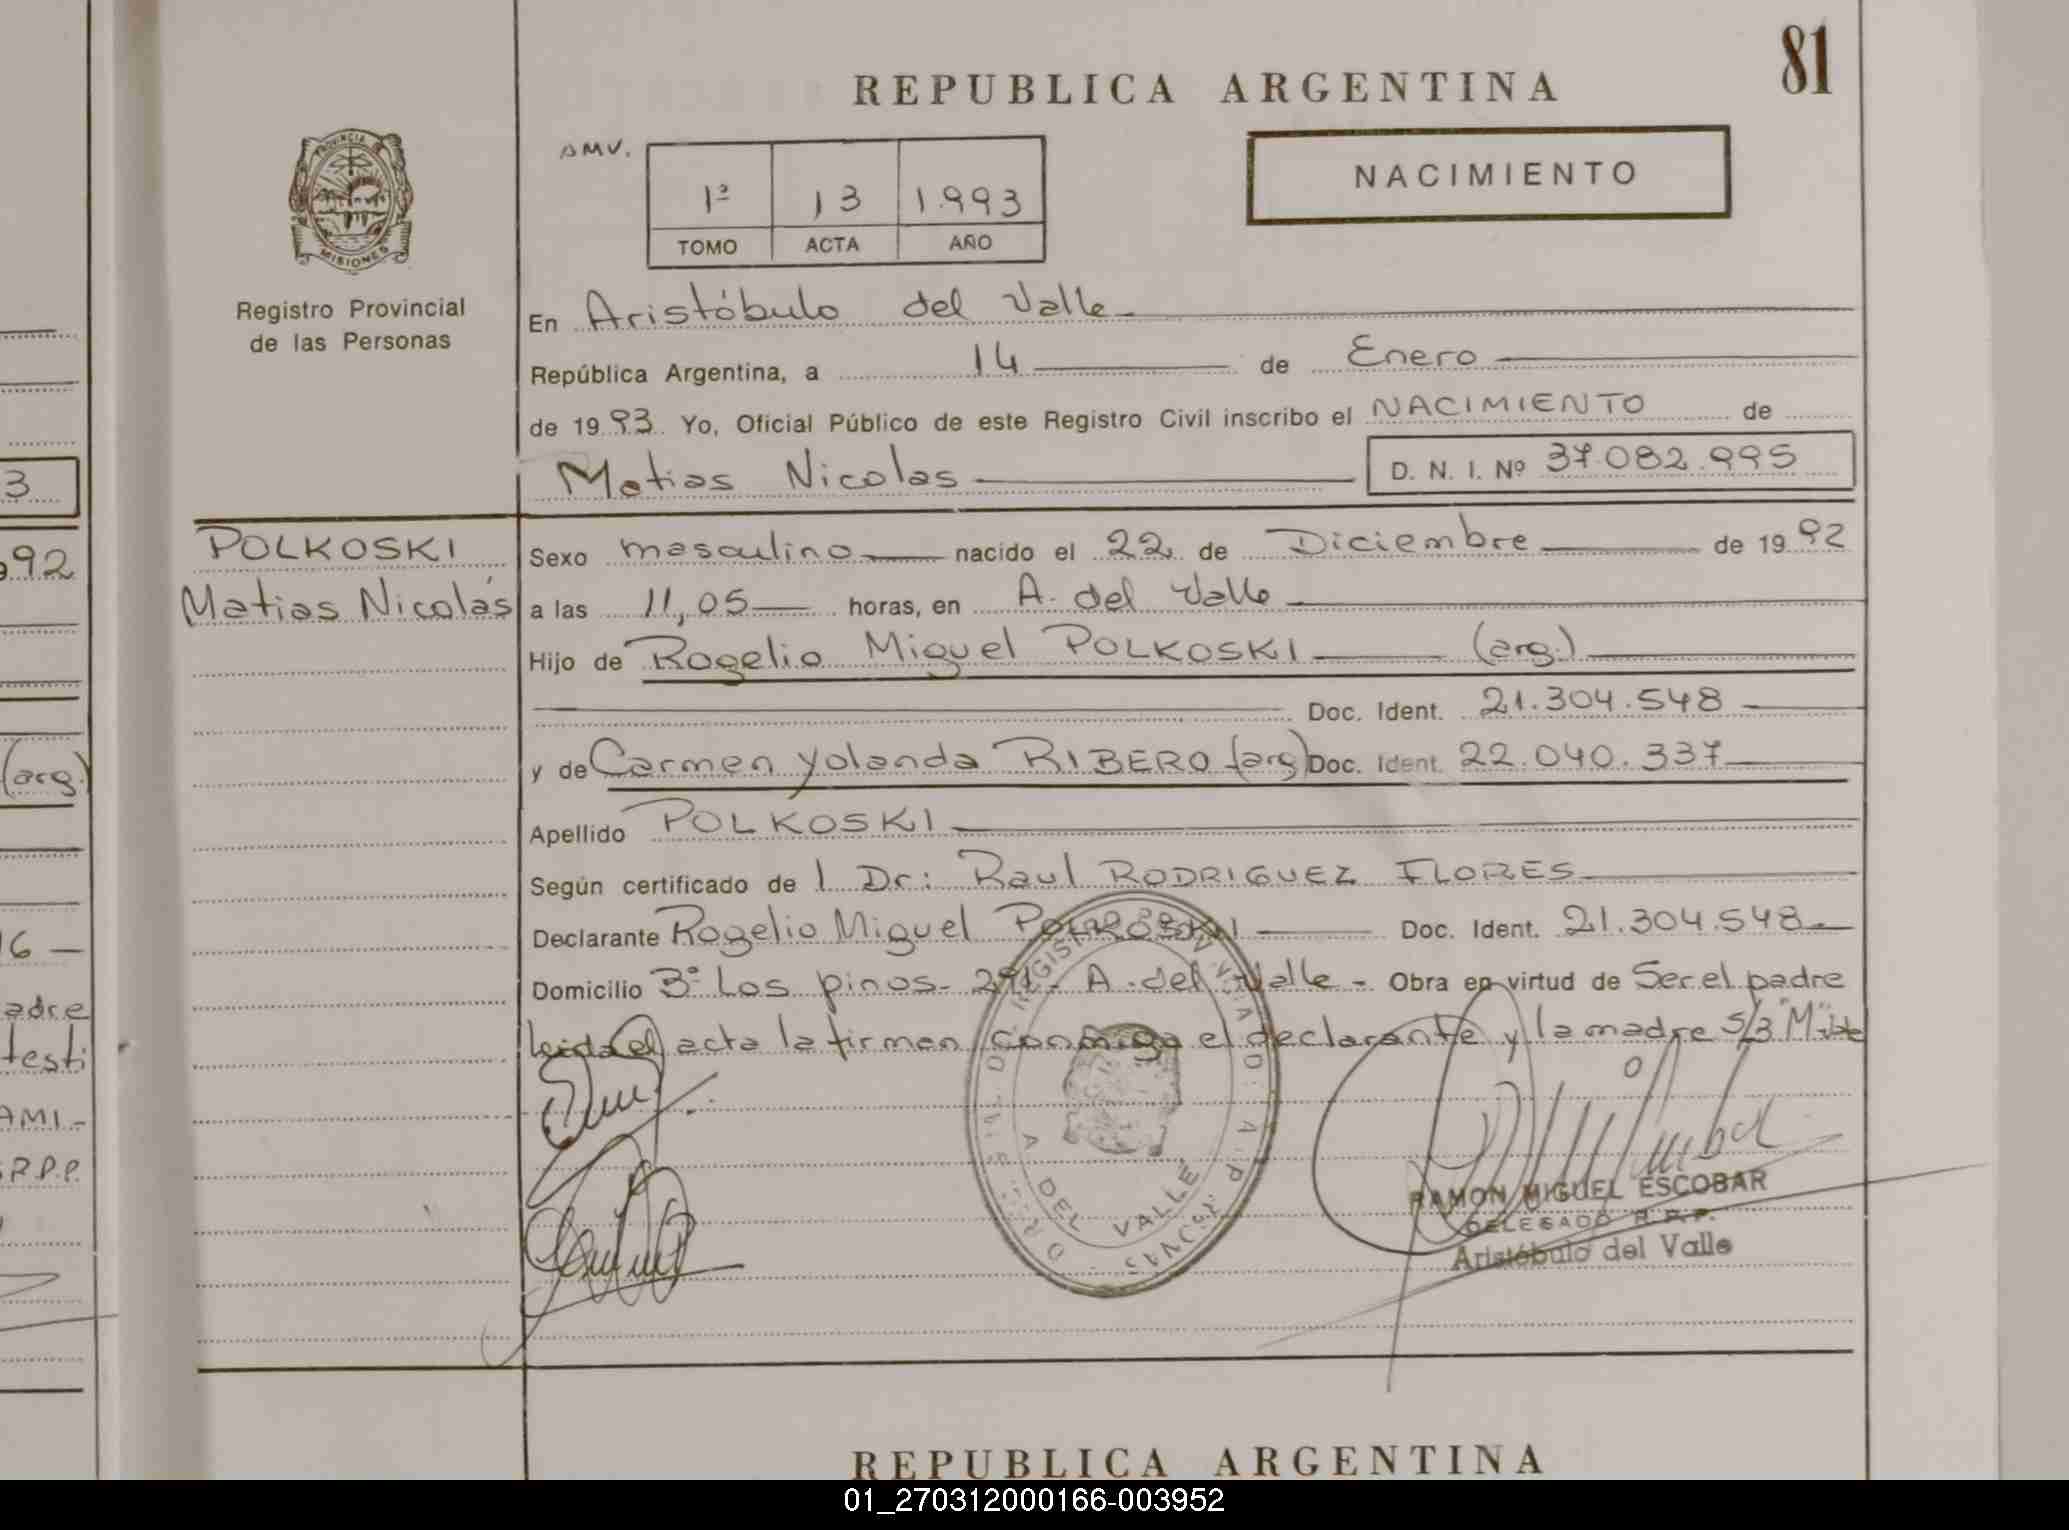 81
REPUBLICA ARGENTINA
AMV.
1ª 13 1.993
TOMO ACTA AÑO
NACIMIENTO
PROVINCIA DE
MISIONES
Registro Provincial
de las Personas
En Aristóbulo del Valle
República Argentina, a 14 de Enero
de 1993 Yo, Oficial Público de este Registro Civil inscribo el NACIMIENTO de
Matias Nicolas D. N. I. Nº 37.082.995
POLKOSKI
Matias Nicolás
Sexo masculino nacido el 22 de Diciembre de 1992
a las 11,05 horas, en A. del Valle
Hijo de Rogelio Miguel POLKOSKI (arg.)
Doc. Ident. 21.304.548
y de Carmen Yolanda RIBERO (arg) Doc. Ident. 22.040.337
Apellido POLKOSKI
Según certificado de l Dr: Raul RODRIGUEZ FLORES
Declarante Rogelio Miguel POLKOSKI Doc. Ident. 21.304.548
Domicilio Bº Los pinos - 291 - A. del Valle - Obra en virtud de Ser el padre
leida el acta la firman conmigo el declarante y la madre S/B
A DEL VALLE
RAMON MIGUEL ESCOBAR
DELEGADO R.P.P.
Aristóbulo del Valle
REPUBLICA ARGENTINA
3
92
(arg.)
16 -
adre
testi
AMI.-
R.P.P.
01_270312000166-003952